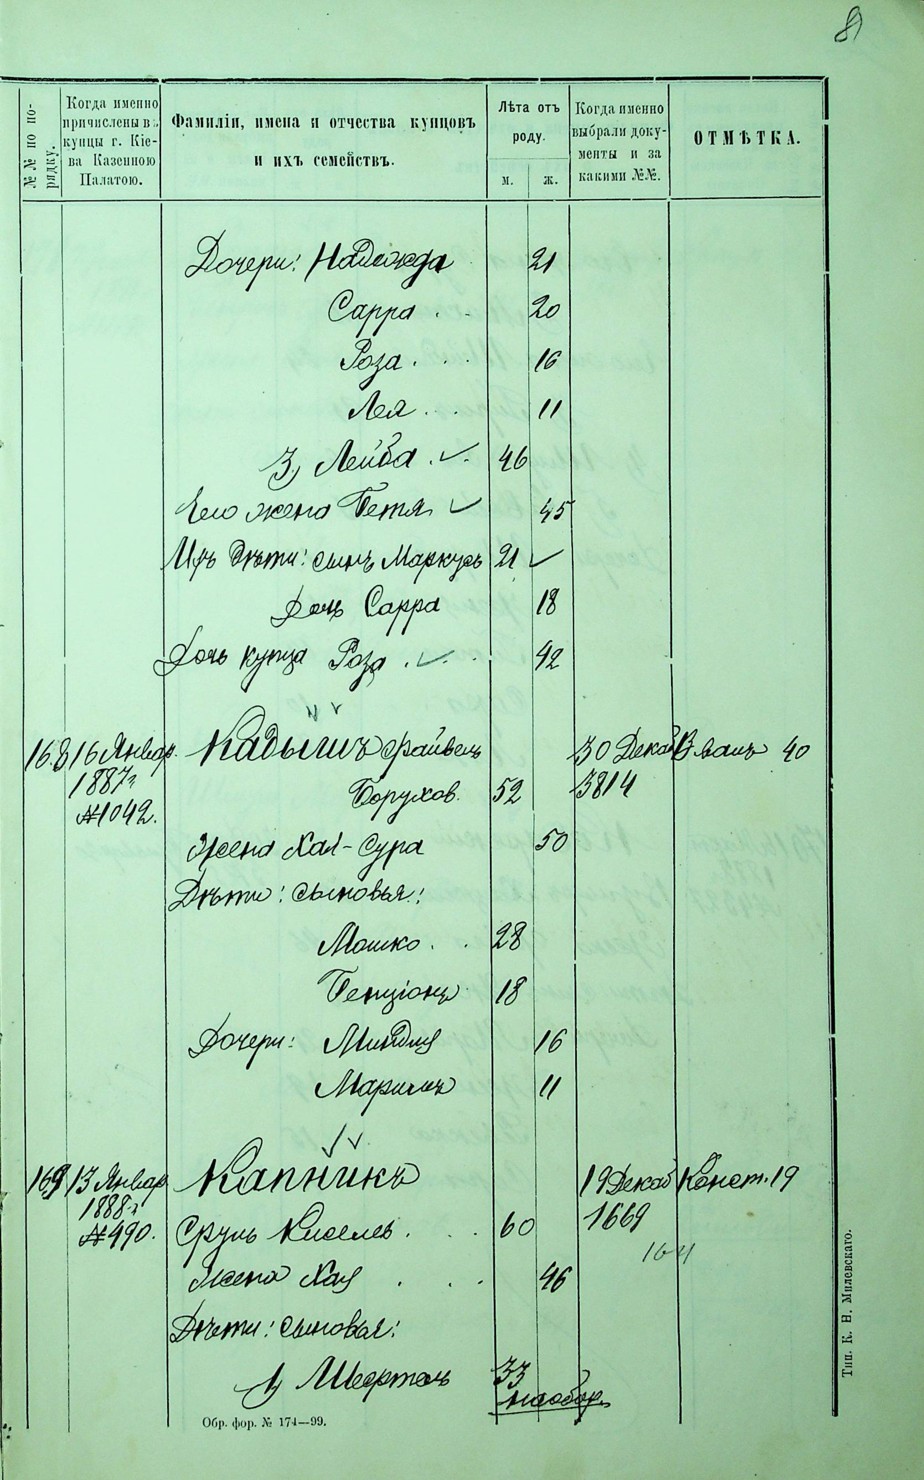 8
№№ по порядку.
Когда именно
причислены въ
купцы г. Кіе-
ва Казенною
Палатою.
Фамиліи, имена и отчества купцовъ
и ихъ семействъ.
Лѣта отъ
роду.
м. ж.
Когда именно
выбрали доку-
менты и за
какими №№.
ОТМѢТКА.
Дочери: Надежда 21
Сарра 20
Роза 16
Лея 11
3, Лейба 46
Его жена Бетя 45
Ихъ дѣти: сынъ Маркусъ 21
Дочь Сарра 18
Дочь купца Роза 42
168 16 Январ. Кадышъ Файвель 30 Декаб 40
1887 г. Борухов. 52 3814
№1042.
Жена Хая-Сура 50
Дѣти: сыновья:
Мошко 28
Бенціонъ 18
Дочери: Миндля 16
Маріямъ 11
169 13 Январ Капникъ 19 Декаб Конст. 19
1888 г. 1669
№490. Сруль Киселев 60
164
Жена Хая 46
Дѣти: сыновья:
1, 33
наобор.
Обр. фор. № 174—99.
Тип. К. Н. Милевскаго.